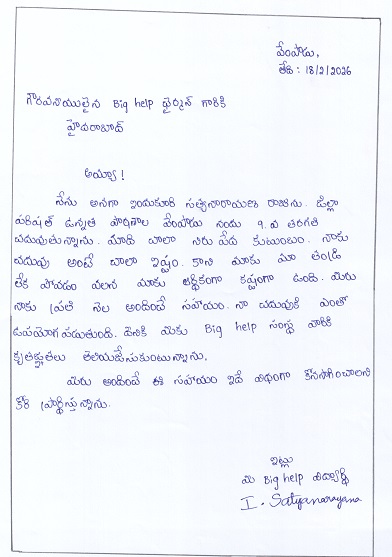 వేంపాడు,
తేది : 18/2/2026
గౌరవనీయులైన Big help ఛైర్మన్ గారికి
హైదరాబాద్
అయ్యా !
నేను అనగా ఇందుకూరి సత్యనారాయణ రాజును. జిల్లా
పరిషత్ ఉన్నత పాఠశాల వేంపాడు నందు 9.వ తరగతి
చదువుతున్నాను. మాది చాలా నిరుపేద కుటుంబం. నాకు
చదువు అంటే చాలా ఇష్టం. కాని మాకు మా తండ్రి
లేక పోవడం వలన మాకు ఆర్థికంగా కష్టంగా ఉంది. మీరు
నాకు ప్రతి నెల అందించే సహాయం. నా చదువుకి ఎంతో
ఉపయోగ పడుతుంది. దీనికి మీకు Big help సంస్థ వారికి
కృతజ్ఞతలు తెలియజేసుకుంటున్నాను.
మీరు అందించే ఈ సహాయం ఇదే విధంగా కొనసాగించాలని
కోరి ప్రార్థిస్తున్నాను.
ఇట్లు
మీ Big help విద్యార్థి
I. Satyanarayana